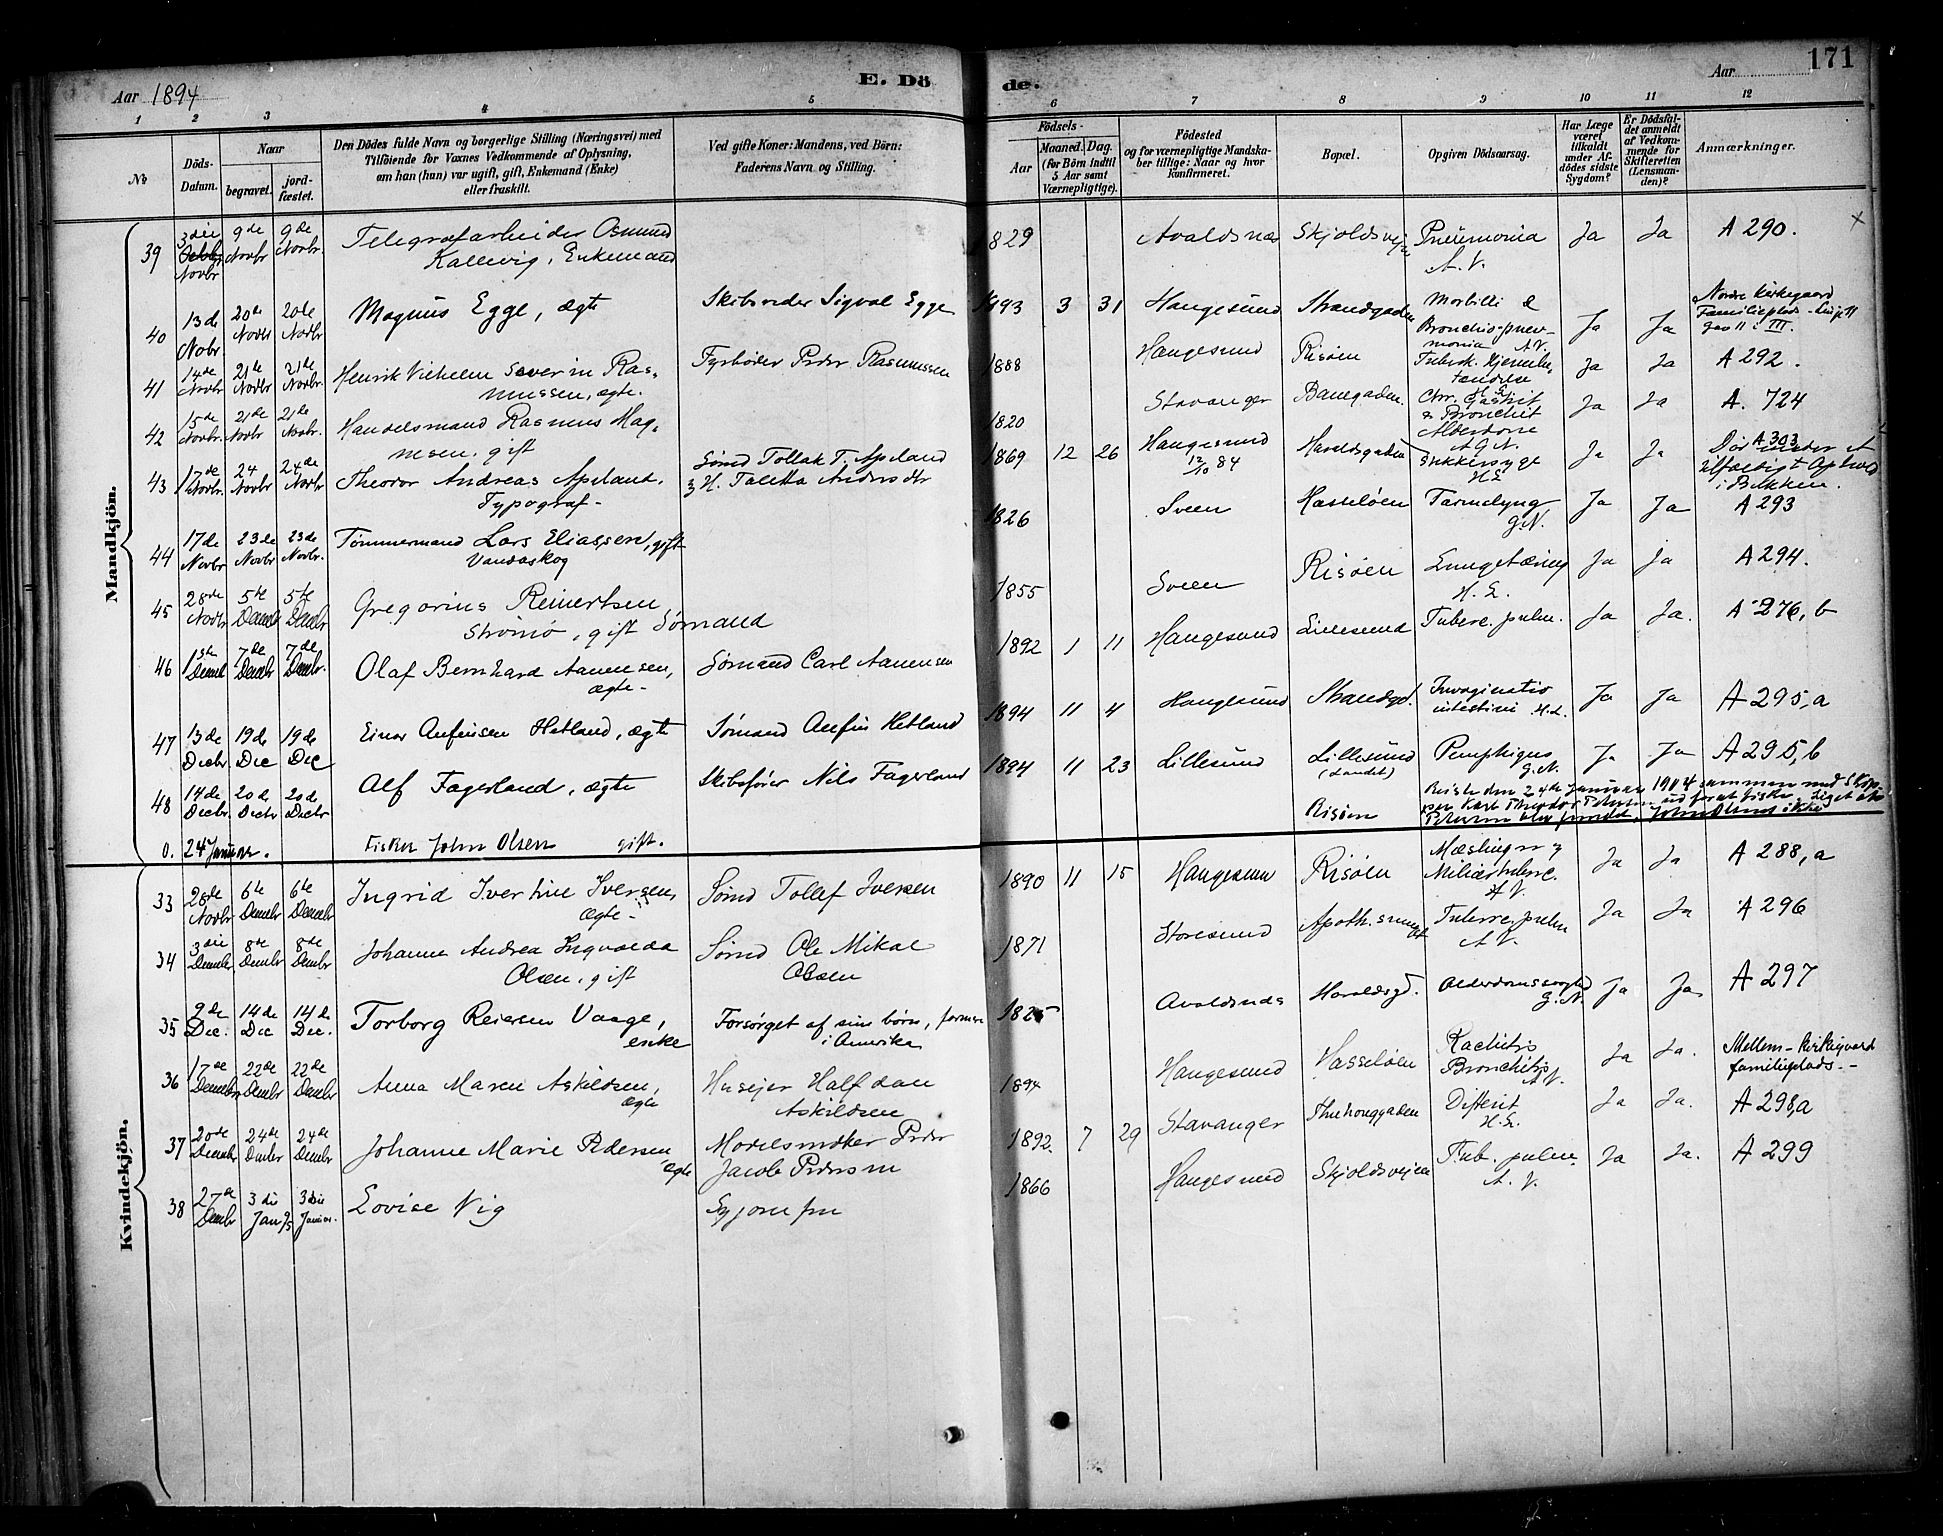 171
Aar 1894
E. Dö
de.
Aar
1 2 3 4 5 6 7 8 9 10 11 12
No
Döds-Datum.
Naar
begravet.
jord-fæstet.
Den Dödes fulde Navn og borgerlige Stilling (Næringsvei) med
Tilföiende for Voxnes Vedkommende af Oplysning,
om han (hun) var ugift, gift, Enkemand (Enke)
eller fraskilt.
Ved gifte Koner: Mandens, ved Börn:
Faderens Navn og Stilling.
Födsels-
Aar
Maaned. Dag.
(for Børn indtil
5 Aar samt
Værnepligtige).
Födested
og for værnepligtige Mandska-
ber tillige: Naar og hvor
konfirmeret.
Bopæl.
Opgiven Dödsaarsag.
Har Læge
været
tilkaldt
under Af-
dödes sidste
Sygdom?
Er Dödsfal-
det anmeldt
af Vedkom-
mende for
Skifteretten
(Lensman-
den)?
Anmærkninger.
Mandkjön.
39 3die Novbr 9de Novbr 9de Novbr. Telegrafarbeider Osmund 1829 Avaldsnæs Skjoldsvejen Pneumonia Ja Ja A 290.
Kallevig, Enkemand A. V.
40 13de Nobr 20de Novbr 20de Novbr Magnus Egge, ægte Skibsreder Sigval Egge 1893 3 31 Haugesund Strandgaden Morbilli & Ja Ja Nordre Kirkegaard
Bronchio-pneu- Familieplads
monia A.V.
41 14de Novbr 21de Novbr 21de Novbr. Henrik Vilhelm Severin Ras- Fyrbøder Peder Rasmussen 1888 Haugesund Risøen Tuberk. Hjernebe- Ja Ja A 292.
mussen, ægte. tændelse
42 15de Novbr. 21de Novbr 21de Novbr. Handelsmand Rasmus Mag- 1820 Stavanger Banegaden. Chr. Gastrit Ja Ja A. 724
nesen. gift & Bronchit
A G N.
43 17de Novbr. 24 Novbr 24de Novbr Theodor Andreas Apeland, Sømd Tollak T. Apeland 1869 12 26 Haugesund Haraldsgaden Sukkersyge Ja Ja A 303
Typograf- & H. Taletta Andersdtr 12/10 84 H E i Bakken.
44 17de Novbr 23de Novbr 23de Novbr. Tømmermand Lars Eliassen, gift 1826 Sveen Hasseløen Tarmslyng Ja Ja A 293
Vandaskog G.N.
45 28de Novbr 5te Decembr 5te Decbr Gregorius Reinertsen 1855 Sveen Risøen Lungetæring Ja Ja A 294.
Strømø, gift Sømand H. E.
46 1ste Decemb 7de Decembr 7de Decembr. Olaf Bernhard Aanensen, Sømand Carl Aanensen 1892 1 11 Haugesund Lillesund Tuberc. pulm. Ja Ja. A 276, b
ægte-
47 13de Decbr 19de Dec 19de Dec Einar Anfinsen Hetland, ægte Sømand Anfin Hetland 1894 11 4 Haugesund Strandgd. Invaginatio Ja Ja A 295, a
intestini H.E.
48 14de Decbr. 20de Decbr 20de Decbr Alf Fagerland, ægte Skibsfører Nils Fagerland 1894 11 23 Lillesund Lillesund Pemphigus Ja Ja A 295, b
(Landet) G.N.
0. 24 Januar. Fisker John Olsen gift. Risøen Reiste den 24de Januar 1904 sammen med Skip-
per Karl Theodor Petersen ud for at fiske. Liget af
Petersen blev fundet, John Olsens ikke
Kvindekjön.
33 28de Novbr 6te Decembr 6te Decembr Ingrid Ivertine Iversen, Sømd Tollef Iversen 1890 11 15 Haugesund Risøen Mæslinger & Ja Ja A 288, a
ægte- Miliærtuberc.
A V.
34 3die Decembr 8de Decembr 8de Decembr Johanne Andrea Ingvalda Sømd Ole Mikal 1871 Storesund Tuberc. pulm Ja Ja A 296
Olsen, gift Olsen A V.
35 9de Dec. 14de Dec 14de Dec. Torborg Reiersen Vaage, Forsørget af sine børn, 1825 Avaldsnæs Haraldsgd. Alderdomssvaghed Ja Ja A 297
enke i Amerika G. N.
36 17de Decembr 22de Decembr 22de Decembr Anna Maren Askildsen, Husejer Halfdan 1894 Haugesund Hasseløen Rachitis Ja Ja. Mellem-kirkegaard
ægte Askildsen Bronchitis familieplads.-
A.V.
37 20de Decembr 24de Decembr 24de Decembr Johanne Marie Pedersen Modelsnedker Peder 1892. 7 29 Stavanger Difterit Ja Ja. A 298,a
ægte Jacob Pedersen H.E.
38 27de Decembr 3die Jan 95 3die Januar. Lovise Vig Syjomfru 1866 Haugesund Skjoldsvejen Tub. pulm. Ja Ja. A 299
A. V.